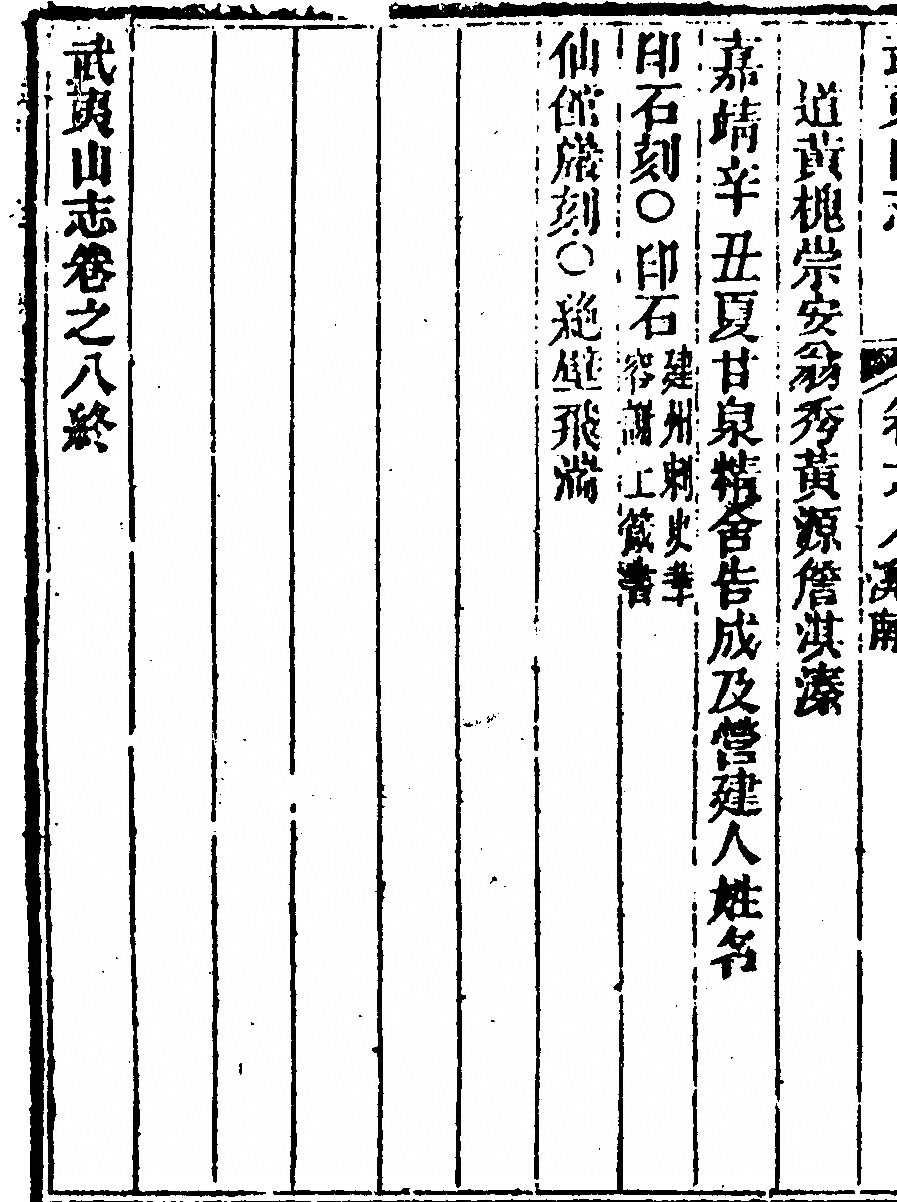 道黃槐崇安翁秀黃源詹淇溱
嘉靖辛丑夏甘泉精舍告成及營建人姓名
印石刻○印石建州刺史華
容謝上篆書
仙館巖刻○絶壁飛湍
武夷山志卷之八終